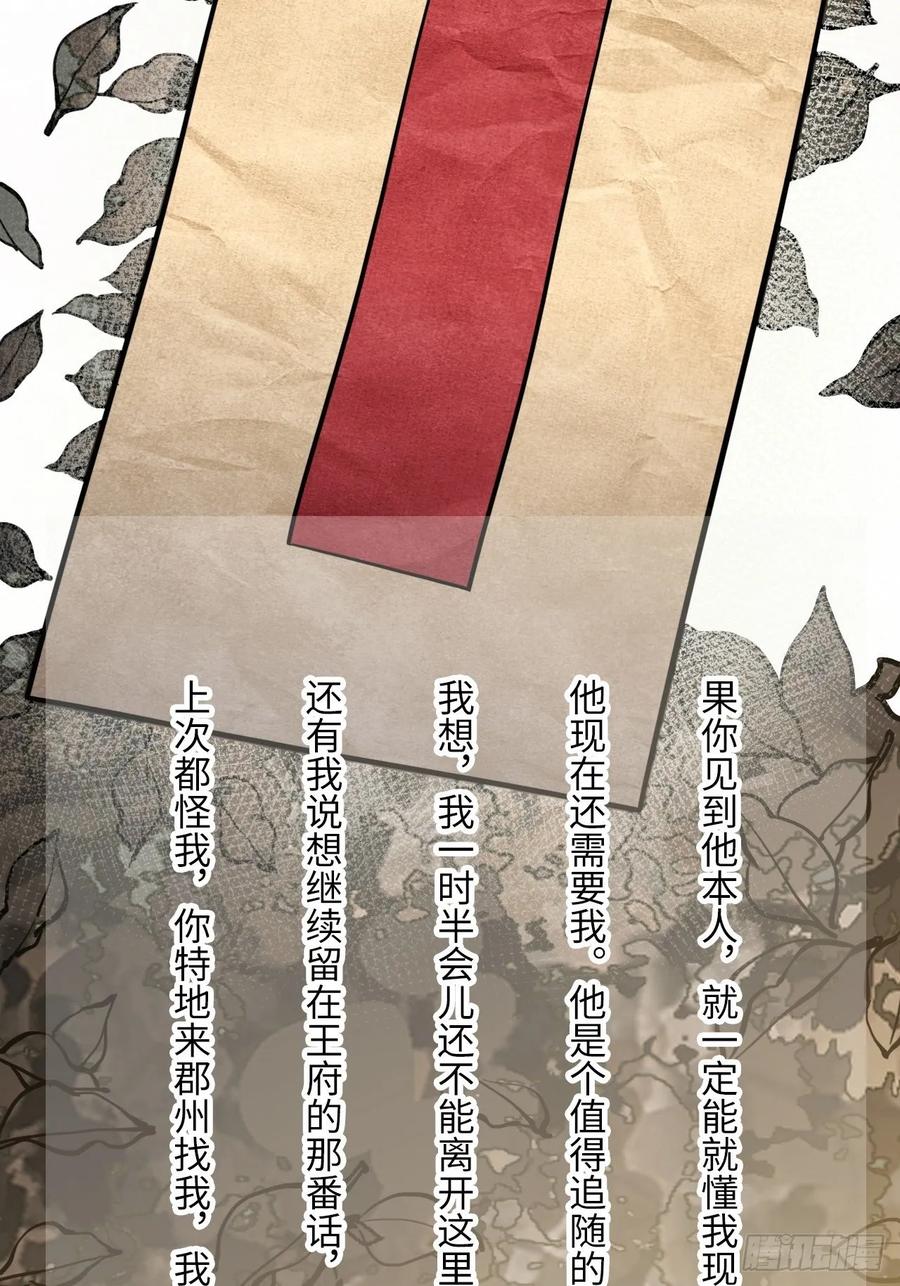 上次都怪我，你特地来郡州找我，我
还有我说想继续留在王府的那番话，
我想，我一时半会儿还不能离开这里
他现在还需要我。他是个值得追随的
果你见到他本人，就一定能就懂我现
腾讯动漫